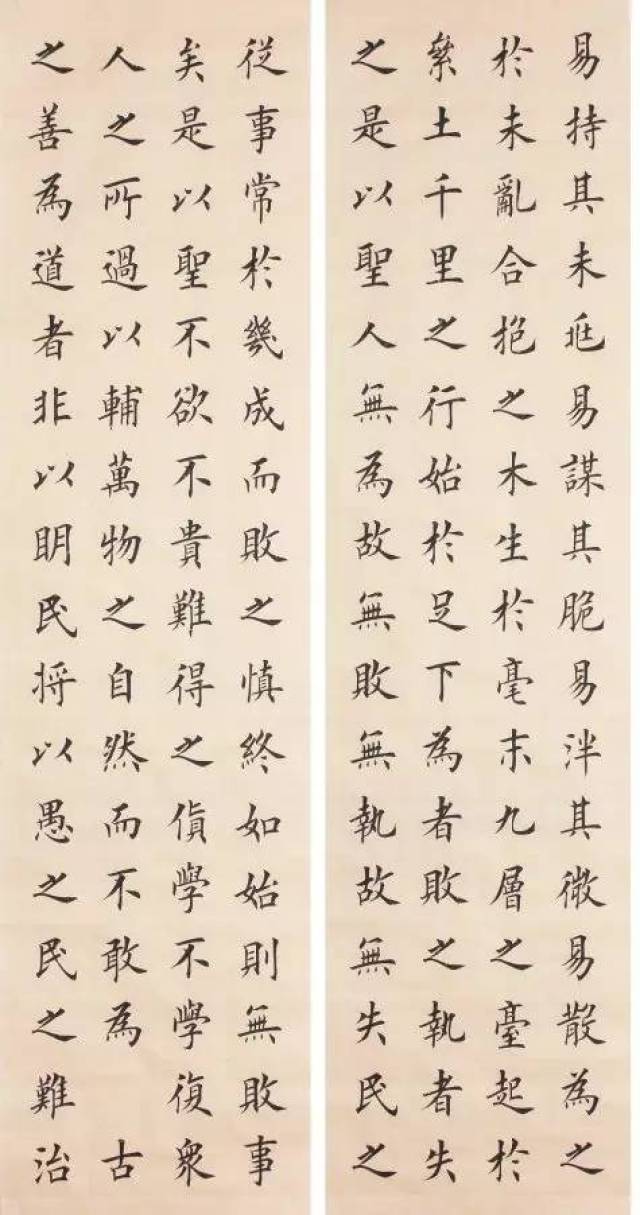 易持其未兆易謀其脆易泮其微易散為之
於未亂合抱之木生於毫末九層之臺起於
絫土千里之行始於足下為者敗之執者失
之是以聖人無為故無敗無執故無失民之
從事常於幾成而敗之慎終如始則無敗事
矣是以聖不欲不貴難得之貨學不學復衆
人之所過以輔萬物之自然而不敢為 古
之善為道者非以眀民將以愚之民之難治